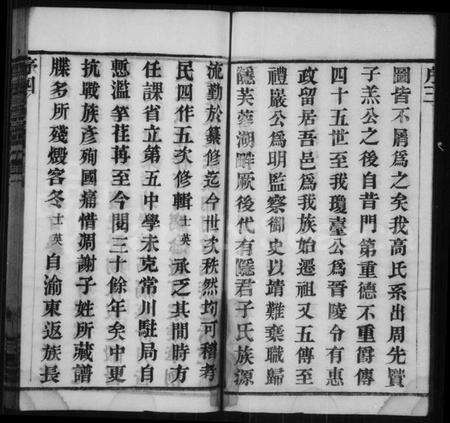 序三
圖皆不屑爲之矣我高氏系出周先賢
子羔公之後自昔門第重德不重爵傳
四十五世至我瓊臺公爲晉陵令有惠
政留居吾邑爲我族始遷祖又五傳至
禮嚴公爲明監察御史以靖難棄職歸
隱芙蓉湖畔厥後代有隱君子氏族源
流勤於纂修迄今世次秩然均可稽考
民四作五次修輯士英承乏其間時方
任課省立第五中學未克常川駐局自
慙濫竽荏苒至今閱三十餘年矣中更
抗戰族彥殉國痛惜凋謝子姓所藏譜
牒多所殘燬客冬士英自渝東返族長
序四